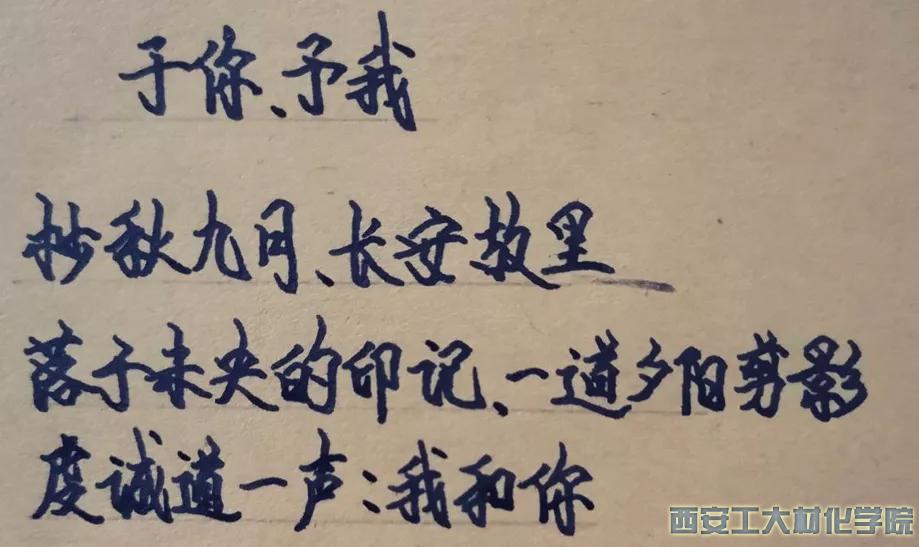 于你、予我
抄秋九月、长安故里
落于未央的印记、一道夕阳剪影
虔诚道一声:我和你
西安工大材化学院